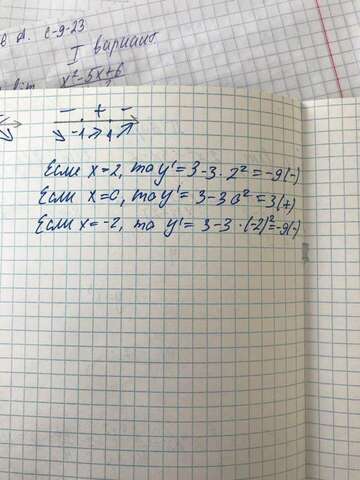 в d. с-9-23
I вариант.
x²-5x+6
- + -
-1 1
Если x=2, то y'= 3-3·2²=-9(-)
Если x=0, то y'= 3-3·0²=3(+)
Если x=-2, то y'= 3-3·(-2)²=-9(-)